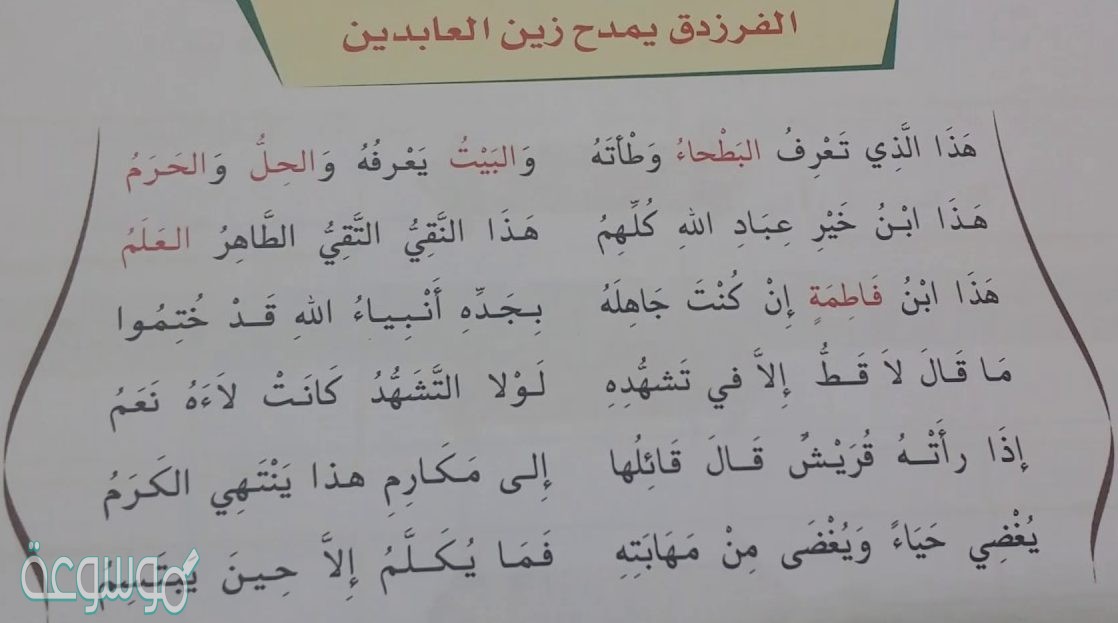 الفرزدق يمدح زين العابدين
هَذَا الَّذِي تَعْرِفُ البَطْحاءُ وَطْأَتَهُ وَالبَيْتُ يَعْرِفُهُ وَالحِلُّ وَالحَرَمُ
هَذَا ابْنُ خَيْرِ عِبَادِ اللهِ كُلِّهِمُ هَذَا النَّقِيُّ التَّقِيُّ الطَّاهِرُ العَلَمُ
هَذَا ابْنُ فَاطِمَةٍ إِنْ كُنْتَ جَاهِلَهُ بِجَدِّهِ أَنْبِياءُ اللهِ قَدْ خُتِمُوا
مَا قَالَ لاَ قَطُّ إِلاَّ في تَشهُّدِهِ لَوْلا التَّشَهُّدُ كَانَتْ لاَءَهُ نَعَمُ
إِذَا رأَتْهُ قُرَيْشٌ قَالَ قَائِلُها إِلى مَكَارِمِ هذا يَنْتَهِي الكَرَمُ
يُغْضِي حَيَاءً وَيُغْضَى مِنْ مَهَابَتِهِ فَمَا يُكَلَّمُ إِلاَّ حِينَ يَبتَسِمُ
موسوعة